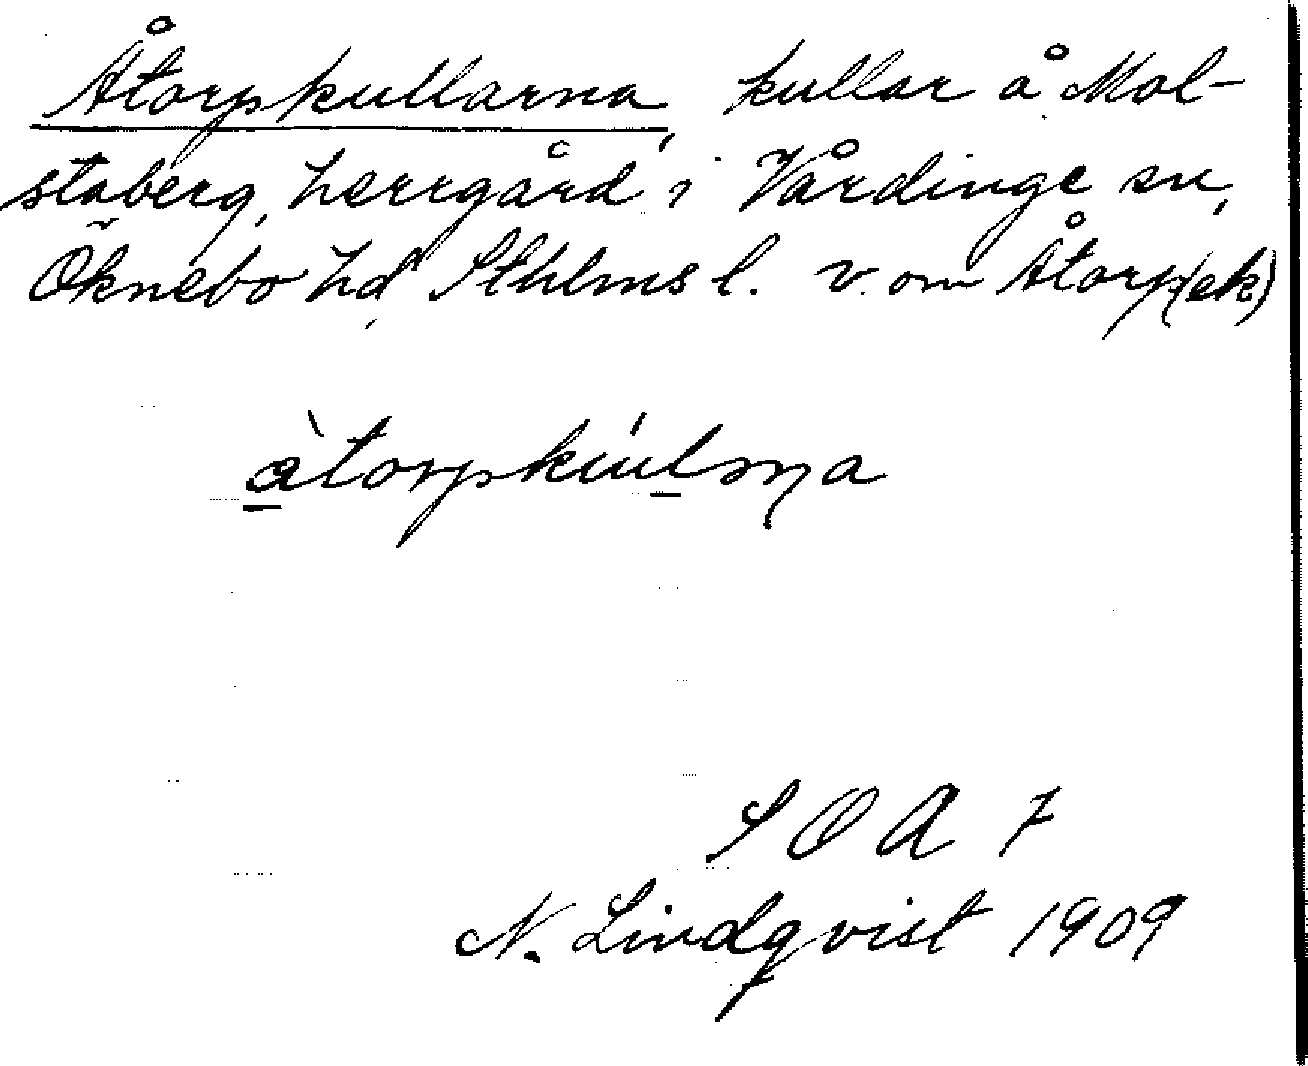 Åtorpkullarna, kullar å Mol-
staberg, herrgård i Vårdinge sn,
Öknebo hd, Sthlms l. v. om Åtorp (ek)
àtorpkúlɳa
S O A 7
N. Lindqvist 1909